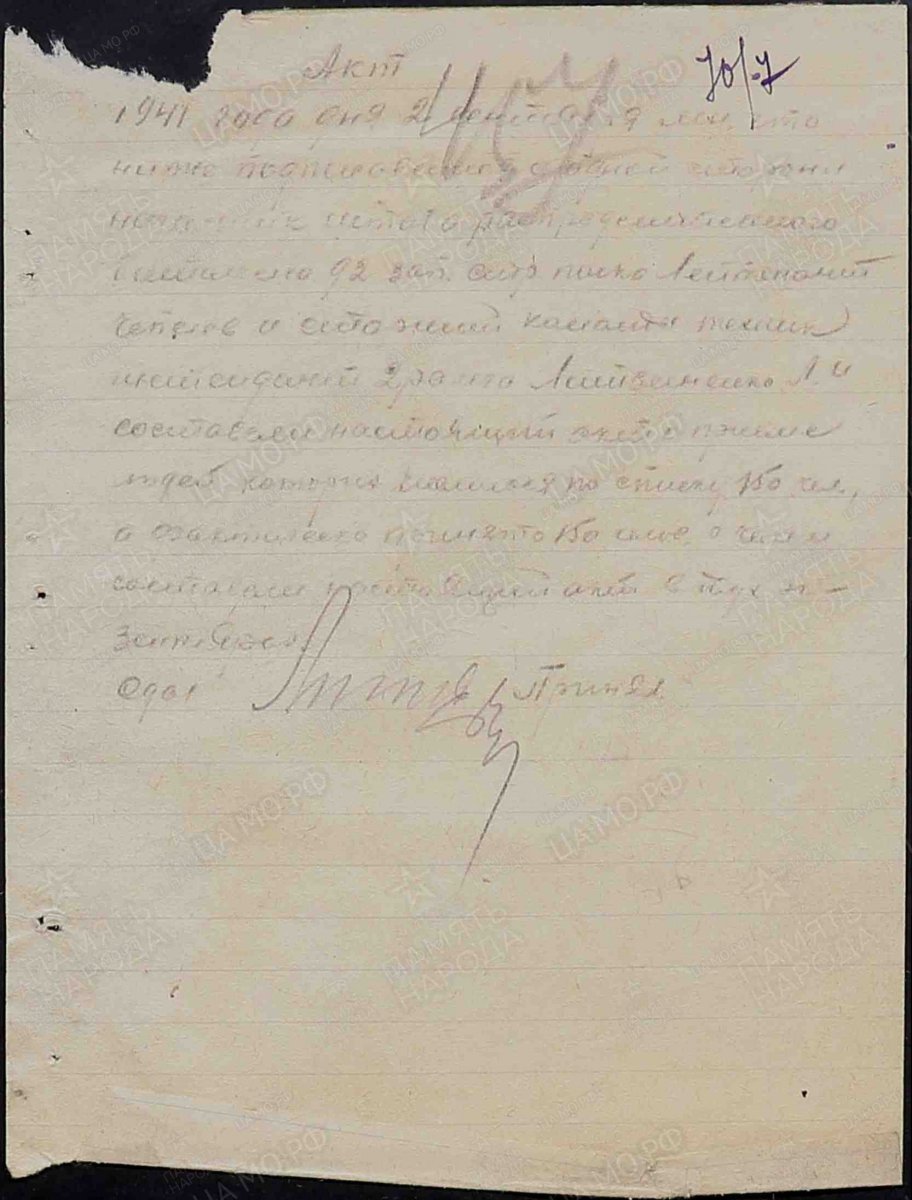 Акт
70/7
1941 года дня 2 сентября мы, что
ниже подписавшиеся с одной стороны
начальник штаба распределительного
батальона 92 зап. стр полка Лейтенант
и старший команды техник
интендант 2 ранга Литвиненко Л. И
составили настоящий акт о приеме
людей которых числилося по списку 150 чел,
а фактически принято 150 чел. о чем и
составили настоящий акт в 2ух эк-
земплярах.
Сдал Принял